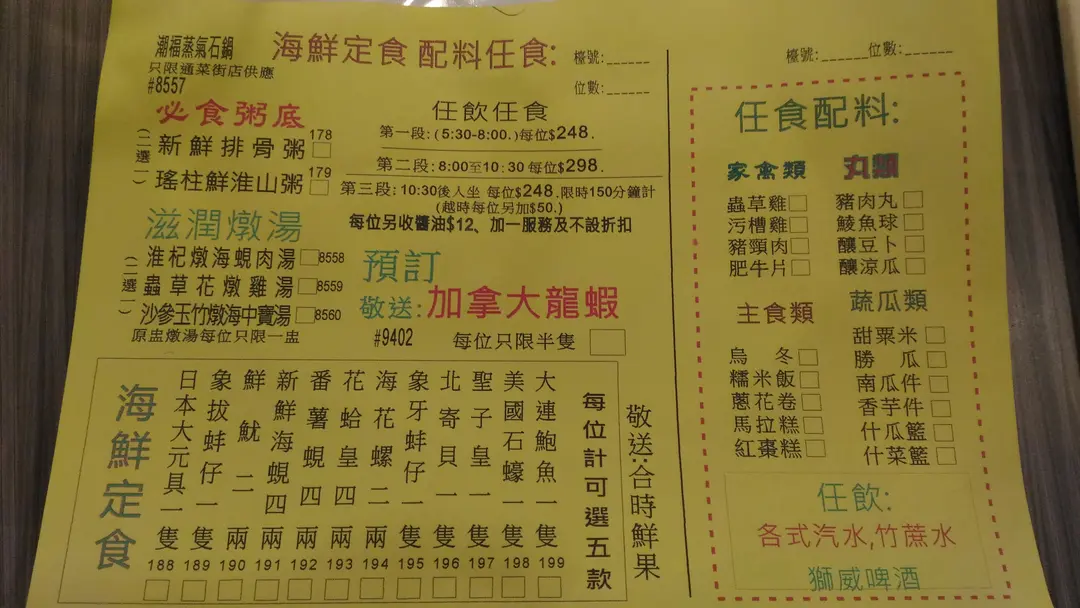 潮福蒸氣石鍋
只限通菜街店供應
#8557
海鮮定食 配料任食:
檯號:______
位數:______
必食粥底
(二選一)
新鮮排骨粥 178
瑤柱鮮淮山粥 179
滋潤燉湯
(二選一)
淮杞燉海蜆肉湯 8558
蟲草花燉雞湯 8559
沙參玉竹燉海中寶湯 8560
原盅燉湯每位只限一盅
任飲任食
第一段:(5:30-8:00.)每位$248.
第二段:8:00至10:30 每位$298.
第三段:10:30後入坐 每位$248.限時150分鐘計
(越時每位另加$50.)
每位另收醬油$12、加一服務及不設折扣
預訂
敬送:加拿大龍蝦
#9402 每位只限半隻
海鮮定食
日本大元具一隻 188
象拔蚌仔一隻 189
鮮魷二兩 190
新鮮海蜆四兩 191
番薯蜆四兩 192
花蛤皇四兩 193
海花螺二兩 194
象牙蚌仔一隻 195
北寄貝一隻 196
聖子皇一隻 197
美國石蠔一隻 198
大連鮑魚一隻 199
每位計可選五款
敬送:合時鮮果
檯號:______位數:______
任食配料:
家禽類
蟲草雞
污槽雞
豬頸肉
肥牛片
丸類
豬肉丸
鯪魚球
釀豆卜
釀涼瓜
主食類
烏 冬
糯米飯
蔥花卷
馬拉糕
紅棗糕
蔬瓜類
甜粟米
勝 瓜
南瓜件
香芋件
什瓜籃
什菜籃
任飲:
各式汽水,竹蔗水
獅威啤酒